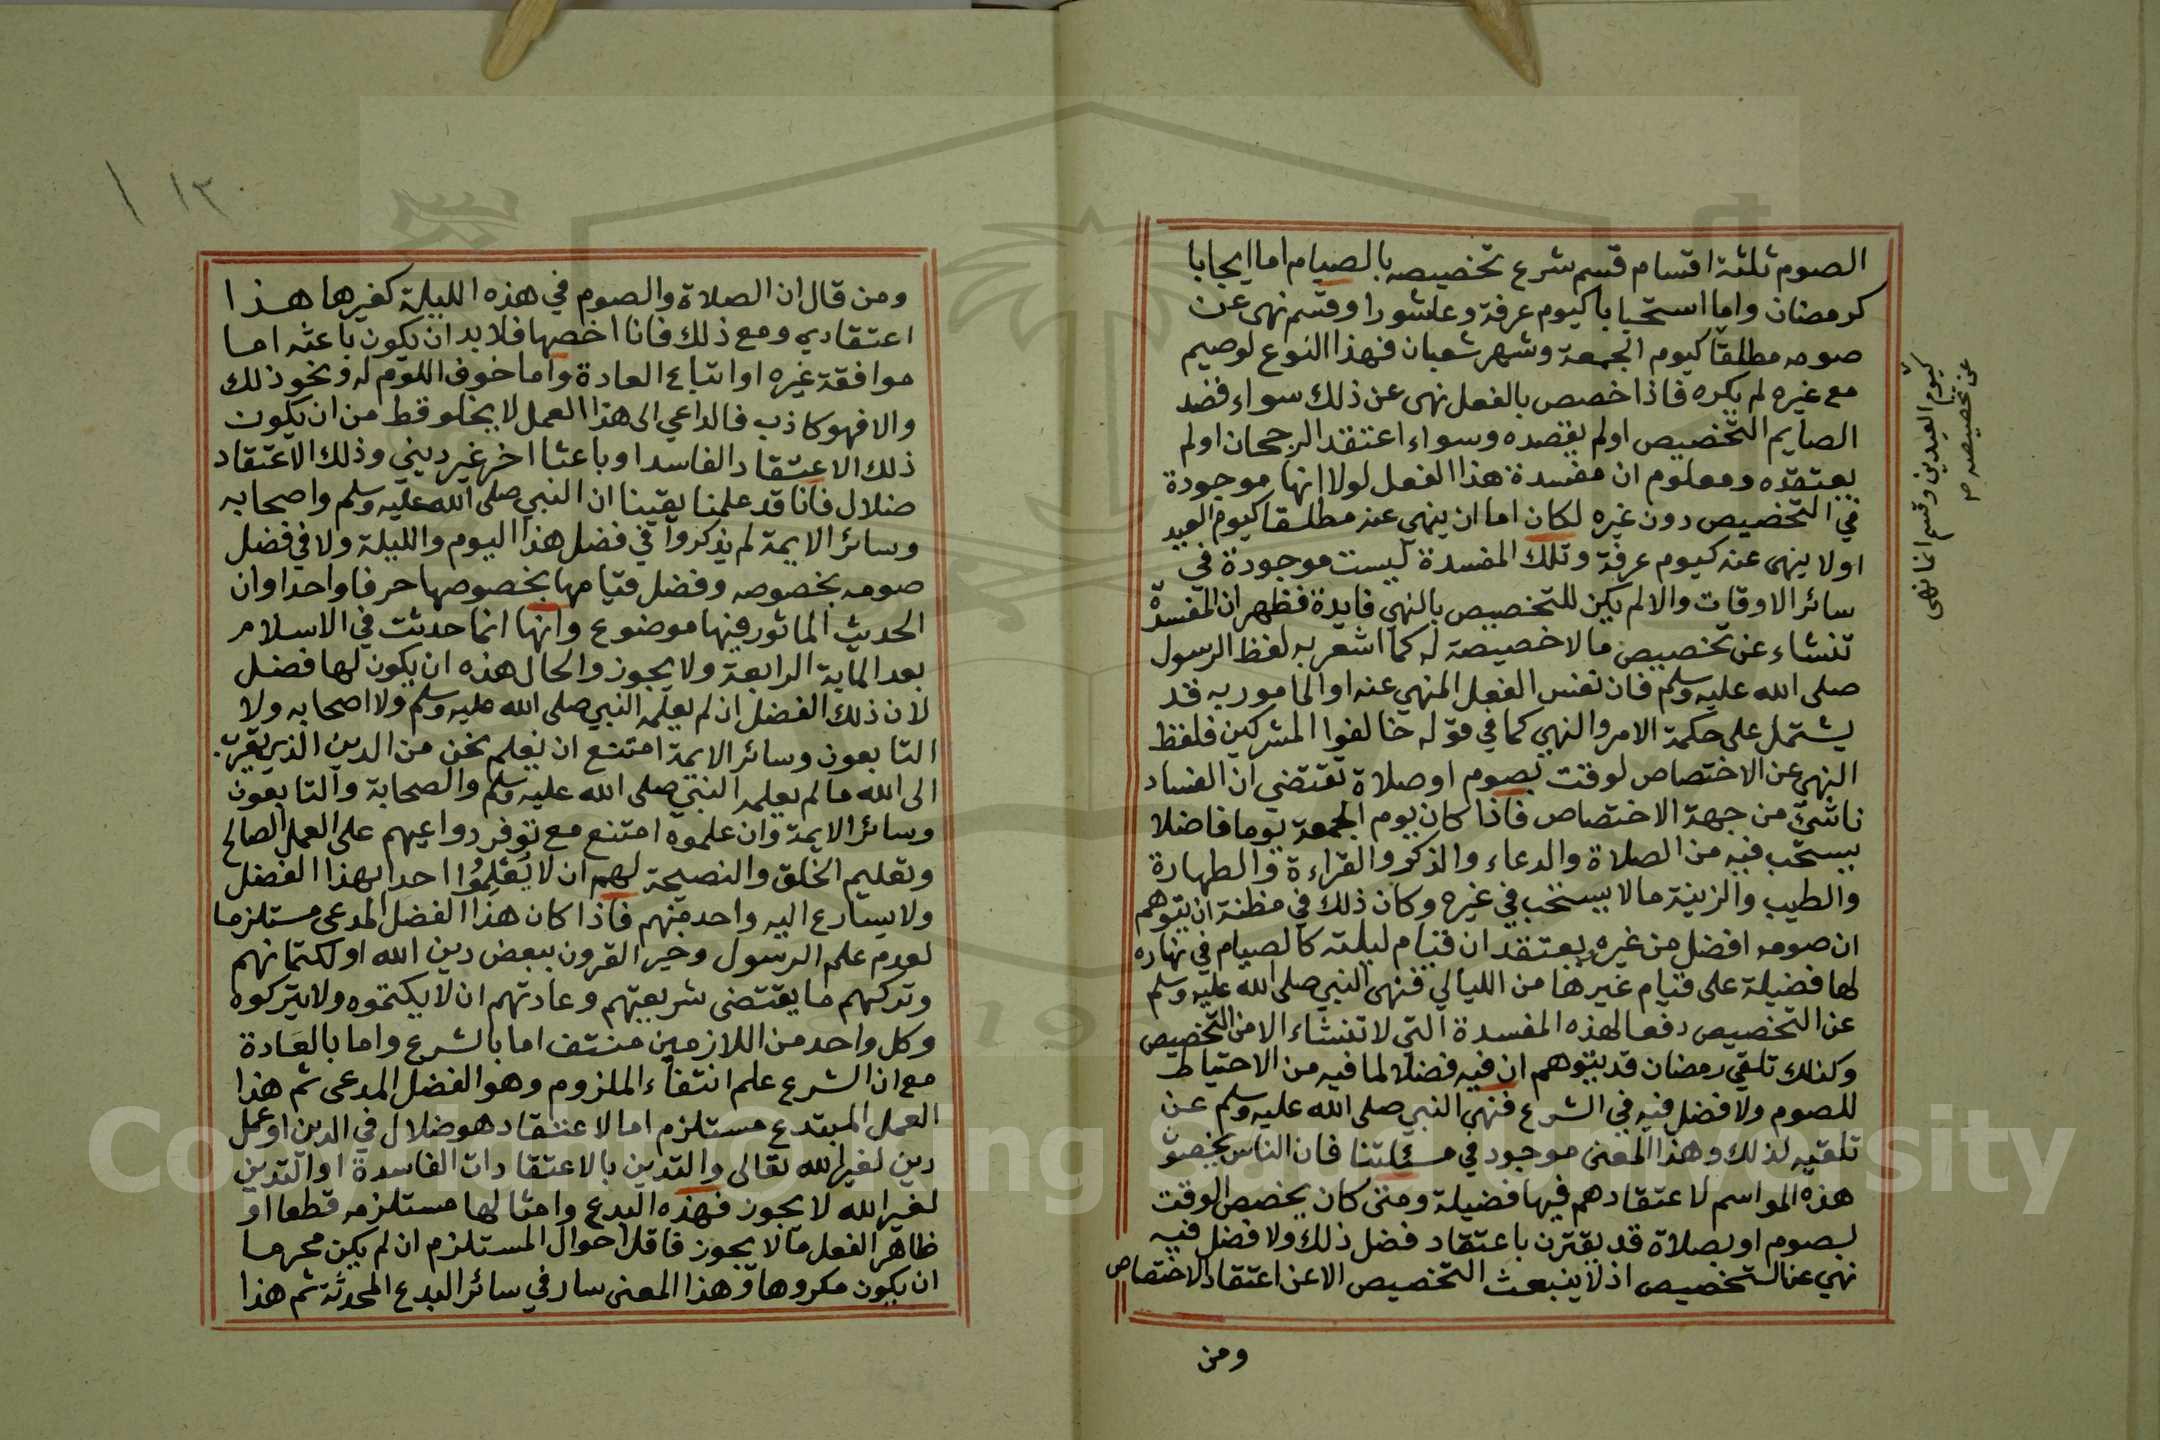 الصوم ثلثة اقسام قسم شرع تخصيصه بالصيام اما ايجابا
كرمضان واما استحبابا كيوم عرفة وعاشورا وقسم نهى عن
صومه مطلقا كيوم الجمعة وشهر شعبان فهذا النوع لوصيم
مع غيره لم يكره فاذا خصص بالفعل نهى عن ذلك سواء قصد
الصايم التخصيص اولم يقصده وسواء اعتقد الرجحان اولم
يعتقده ومعلوم ان مفسدة هذا الفعل لولا انها موجودة
في التخصيص دون غيره لكان اما ان ينهى عنه مطلقا كيوم العيد
اولا ينهى عنه كيوم عرفة وتلك المفسدة ليست موجودة في
سائر الاوقات والا لم يكن للتخصيص بالنهي فايدة فظهر ان المفسدة
تنشاء عن تخصيص مالا خصيصة له كما اشعر به لفظ الرسول
صلى الله عليه وسلم فان نفس الفعل المنهي عنه او المامور به قد
يشتمل على حكمة الامر والنهي كما في قوله خالفوا المشركين فلفظ
النهي عن الاختصاص لوقت بصوم او صلاة تقتضي ان الفساد
ناشئ من جهة الاختصاص فاذا كان يوم الجمعة يوما فاضلا
يستحب فيه من الصلاة والدعاء والذكر والقراءة والطهارة
والطيب والزينة مالا يستحب في غيره وكان ذلك في مظنة ان يتوهم
ان صومه افضل من غيره يعتقد ان قيام ليلته كالصيام في نهاره
لها فضيلة على قيام غيرها من الليالي فنهى النبي صلى الله عليه وسلم
عن التخصيص دفعا لهذه المفسدة التي لا تنشاء الا من التخصيص
وكذلك تلقي رمضان قد يتوهم ان فيه فضلا لما فيه من الاحتياط
للصوم ولا فضل فيه في الشرع فنهى النبي صلى الله عليه وسلم عن
تلقيه لذلك وهذا المعنى موجود في مسئلتنا فان الناس يخصون
هذه المواسم لاعتقادهم فيها فضيلة ومتى كان يخصص الوقت
بصوم او بصلاة قد يقترن باعتقاد فضل ذلك ولا فضل فيه
نهي عن التخصيص اذ لا ينبعث التخصيص الا عن اعتقاد الاختصاص
ومن
كيوم العيدين وقسم انما نهى
عن تخصيصه
١٣٠
ومن قال ان الصلاة والصوم في هذه الليلة كغيرها هذا
اعتقادي ومع ذلك فانا اخصها فلا بد ان يكون باعثه اما
موافقة غيره او اتباع العادة واما خوف اللوم له ونحو ذلك
والا فهو كاذب فالداعي الى هذا العمل لا يخلو قط من ان يكون
ذلك الاعتقاد الفاسد او باعثا اخر غير ديني وذلك الاعتقاد
ضلال فانا قد علمنا يقينا ان النبي صلى الله عليه وسلم واصحابه
وسائر الايمة لم يذكروا في فضل هذا اليوم والليلة ولا في فضل
صومه بخصوصه وفضل قيامها بخصوصها حرفا واحدا وان
الحديث الماثور فيها موضوع وانها انما حدثت في الاسلام
بعد الماية الرابعة ولا يجوز والحال هذه ان يكون لها فضل
لان ذلك الفضل ان لم يعلمه النبي صلى الله عليه وسلم ولا اصحابه ولا
التابعون وسائر الايمة امتنع ان نعلم نحن من الدين الذي يقرب
الى الله ما لم يعلمه النبي صلى الله عليه وسلم والصحابة والتابعون
وسائر الايمة وان علموه امتنع مع توفر دواعيهم على العمل الصالح
وتعليم الخلق والنصيحة لهم ان لا يُعَلِّمُوا احدا بهذا الفضل
ولا يسارع اليه واحد منهم فاذا كان هذا الفضل المدعى مستلزما
لعدم علم الرسول وخير القرون ببعض دين الله او لكتمانهم
وتركهم ما يقتضى شريعتهم وعادتهم ان لا يكتموه ولا يتركوه
وكل واحد من اللازمين منتف اما بالشرع واما بالعَادة
مع ان الشرع علم انتفاء الملزوم وهو الفضل المدعى ثم هذا
العمل المبتدع مستلزم اما لاعتقاد هو ضلال في الدين او عمل
دين لغير الله تعالى والتدين بالاعتقادات الفاسدة او التدين
لغير الله لا يجوز فهذه البدع وامثالها مستلزمه قطعا او
ظاهرا لفعل مالا يجوز فاقل احوال المستلزم ان لم يكن محرما
ان يكون مكروها وهذا المعنى سار في سائر البدع المحدثة ثم هذا